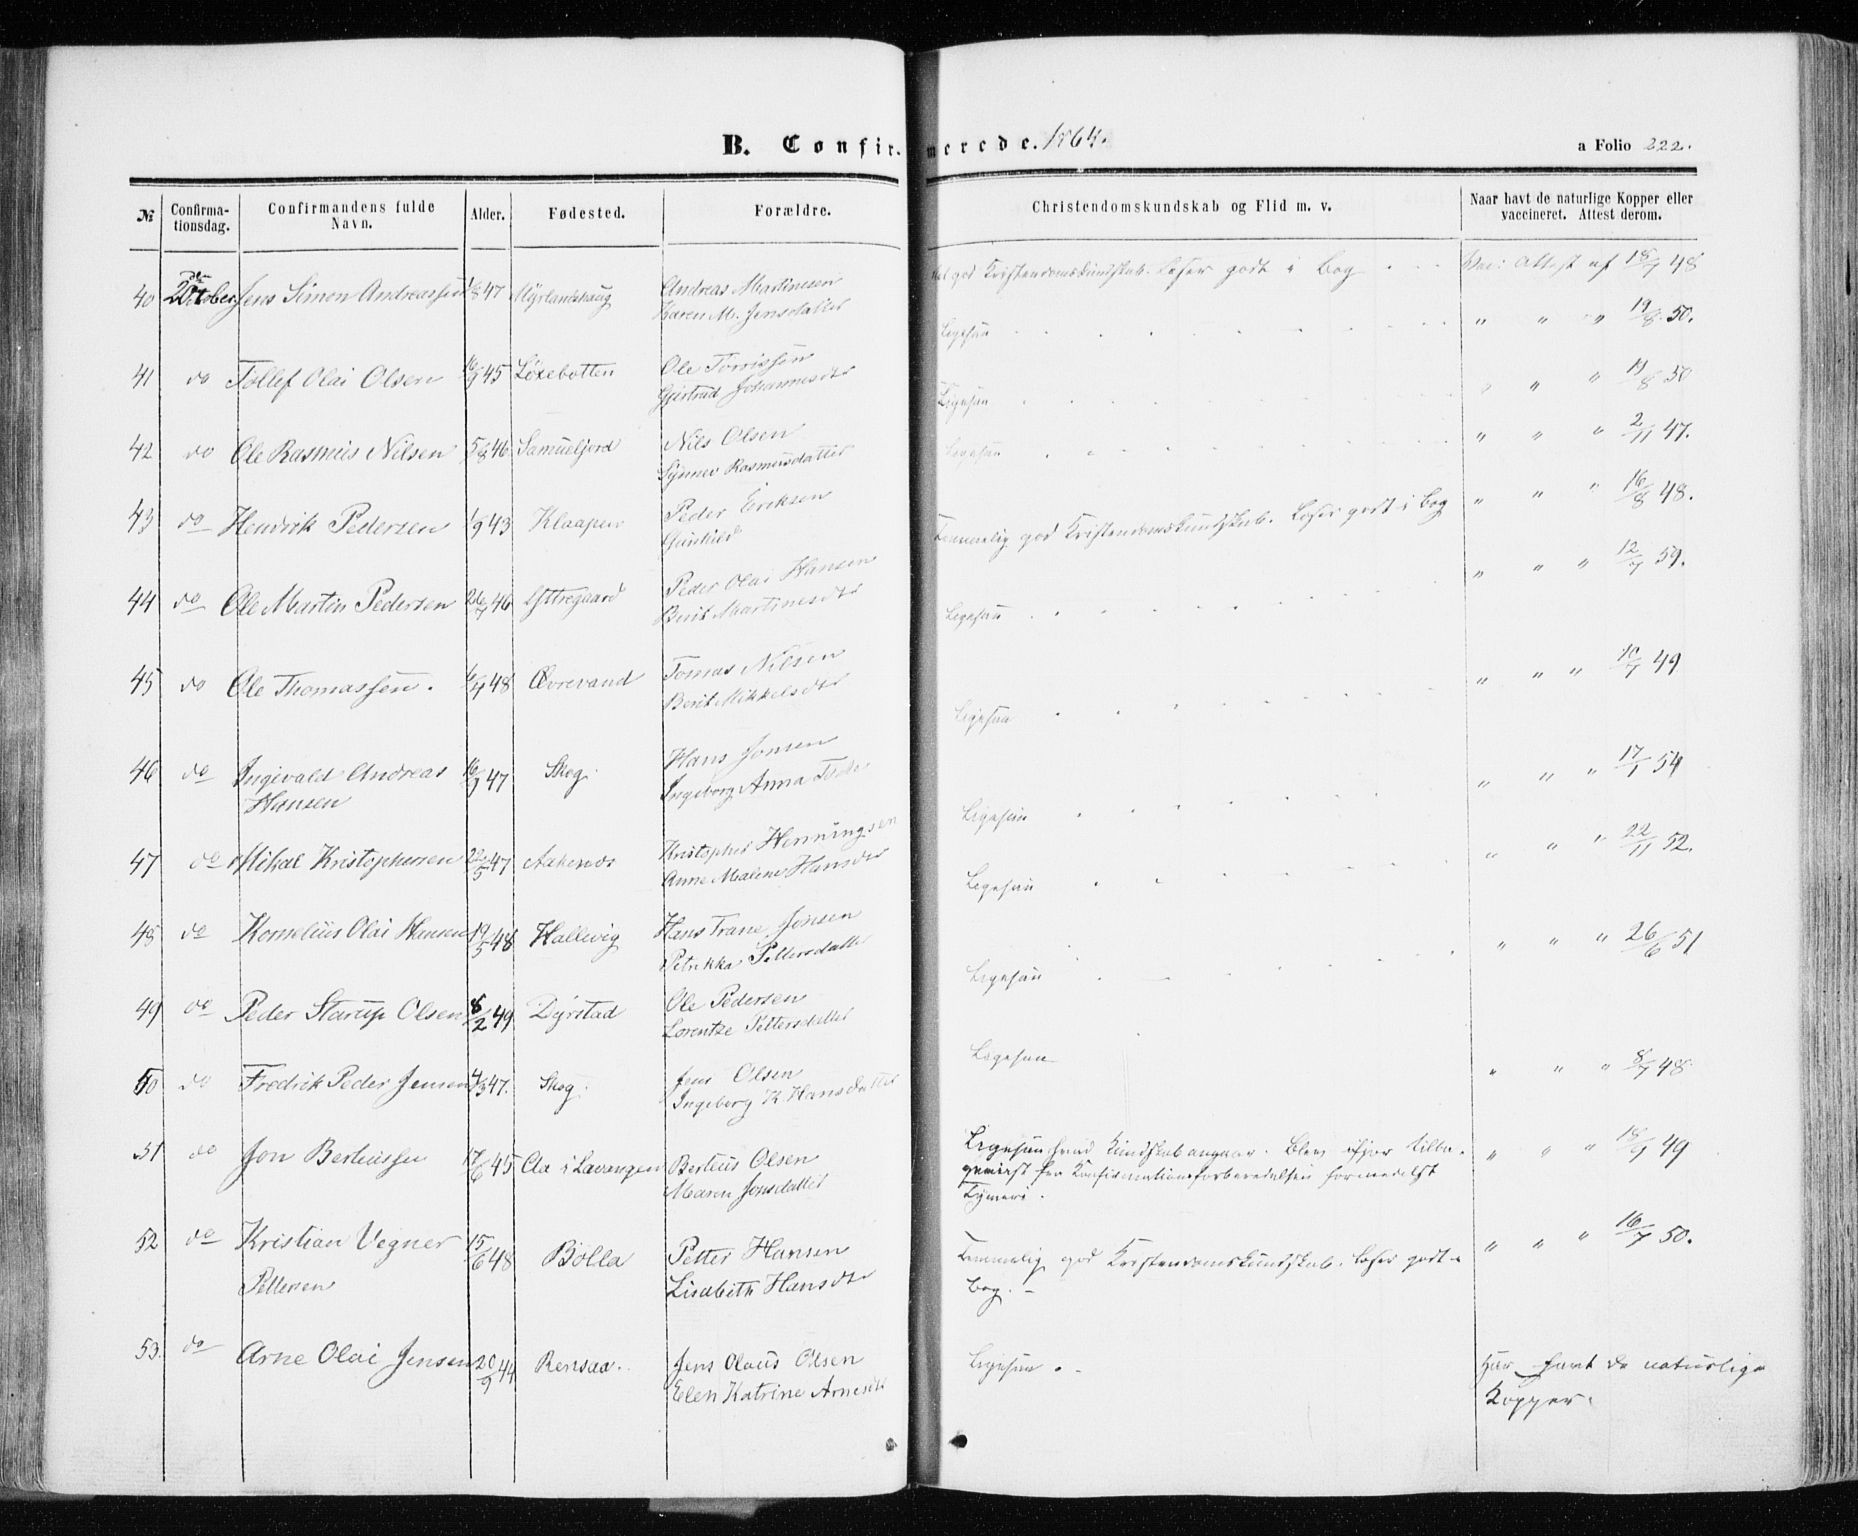 B. Confirmerede. 1864.
a Folio 222.
№
Confirmationsdag.
Confirmandens fulde Navn.
Alder.
Fødested.
Forældre.
Christendomskundskab og Flid m. v.
Naar havt de naturlige Kopper eller vaccineret. Attest derom.
40 October Jens Simon Andreassen 47 Myrlandshaug Andreas Martinesen
Karen M. Jensdatter
god Kristendomskundskab. Læser godt i Bog Attest af 18/7 48
41 do Tollef Olai Olsen 45 Löxebotten Ole Torrissen
Gjertrud Johannesdtr
Ligesaa " " " 19/8 50.
42 do Ole Rasmus Nilsen 5/8 46 Samueljord Nils Olsen
Synnev Rasmusdatter
Ligesaa " " " 19/8 50
43 do Hendrik Pedersen 1/9 43 Klaapen Peder Eriksen
Gunhild
Ligesaa " " " 2/11 47.
44 do Ole Martin Pedersen 26/7 46 Yttregaard Peder Olai Hansen
Berit Martinesdtr
Temmelig god Kristendomskundskab. Læser godt i Bog " " " 16/8 48.
45 do Ole Thomassen. 48 Øvrevand Tomas Nilsen
Berit Mikkelsdtr
Ligesaa " " " 12/7 59.
46 do Ingivald Andreas
Hansen
47 Skog. Hans Jonsen
Ingeborg Anna
Ligesaa " " " 10/7 49
47 do Mikal Kristophersen 22/5 47 Aakenes Kristopher Henningsen
Anne Malene Hansdtr
Ligesaa " " " 17/7 54
48 do Kornelius Olai Hansen 19/5 48 Hallevig Hans Trane Jonsen
Petrikka Pettersdatter
Ligesaa " " " 22/11 52.
49 do Peder Starup Olsen 8/2 49 Dyrstad Ole Pedersen
Lorentze Pettersdatter
Ligesaa " " " 26/6 51
50 do Fredrik Peder Jensen 4/3 47. Skog. Jens Olsen
Ingeborg K. Hansdatter
Ligesaa " " " 8/7 48
51 do Jon Berteussen 17/6 45 Aa i Lavangen Berteus Olsen
Maren Jonsdatter
Ligesaa hvad Kundskab angaar. Blev ifjor tilba-
geviist fra Konfirmationsforberedelsen formedelst
Tyveri.
" " " 18/9 49
52 do Kristian Vegner
Pettersen
15/6 48 Bolla Petter Hansen
Lisabeth Hansdtr
Temmelig god Kristendomskundskab. Læser godt i
Bog. -
" " " 16/7 50.
53. do Arne Olai Jensen 20/9 44 Rensaa. Jens Olaus Olsen
Elen Katrine Arnesdtr
Ligesaa. - Har havt de naturlige
Kopper.